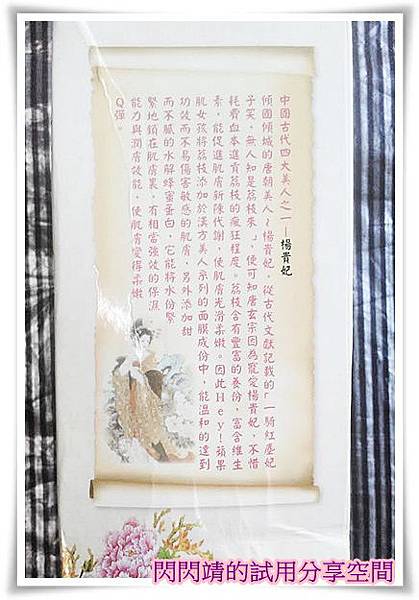 中國古代四大美人之一—楊貴妃
傾國傾城的唐朝美人~楊貴妃,從古代文獻記載的「一騎紅塵妃
子笑,無人知是荔枝來」,便可知唐玄宗因為寵愛楊貴妃,不惜
耗費血本進貢荔枝的瘋狂程度。荔枝含有豐富的養份,富含維生
素,能促進肌膚新陳代謝,使肌膚光滑柔嫩。因此Hey!蘋果
肌女孩將荔枝添加於漢方美人系列的面膜成份中,能溫和的達到
功效而不易傷害敏感的肌膚,另外添加甜
而不膩的水解蜂蜜蛋白,它能將水份緊
緊地鎖在肌膚裏,有相當強效的保濕
能力與潤膚效能,使肌膚變得柔嫩
Q彈。
閃閃靖的試用分享空間